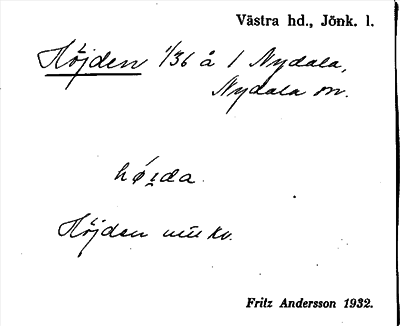 Västra hd., Jönk. l.
Höjden 1/36 å 1 Nydala,
Nydala sn.
Höjden
Fritz Andersson 1932.